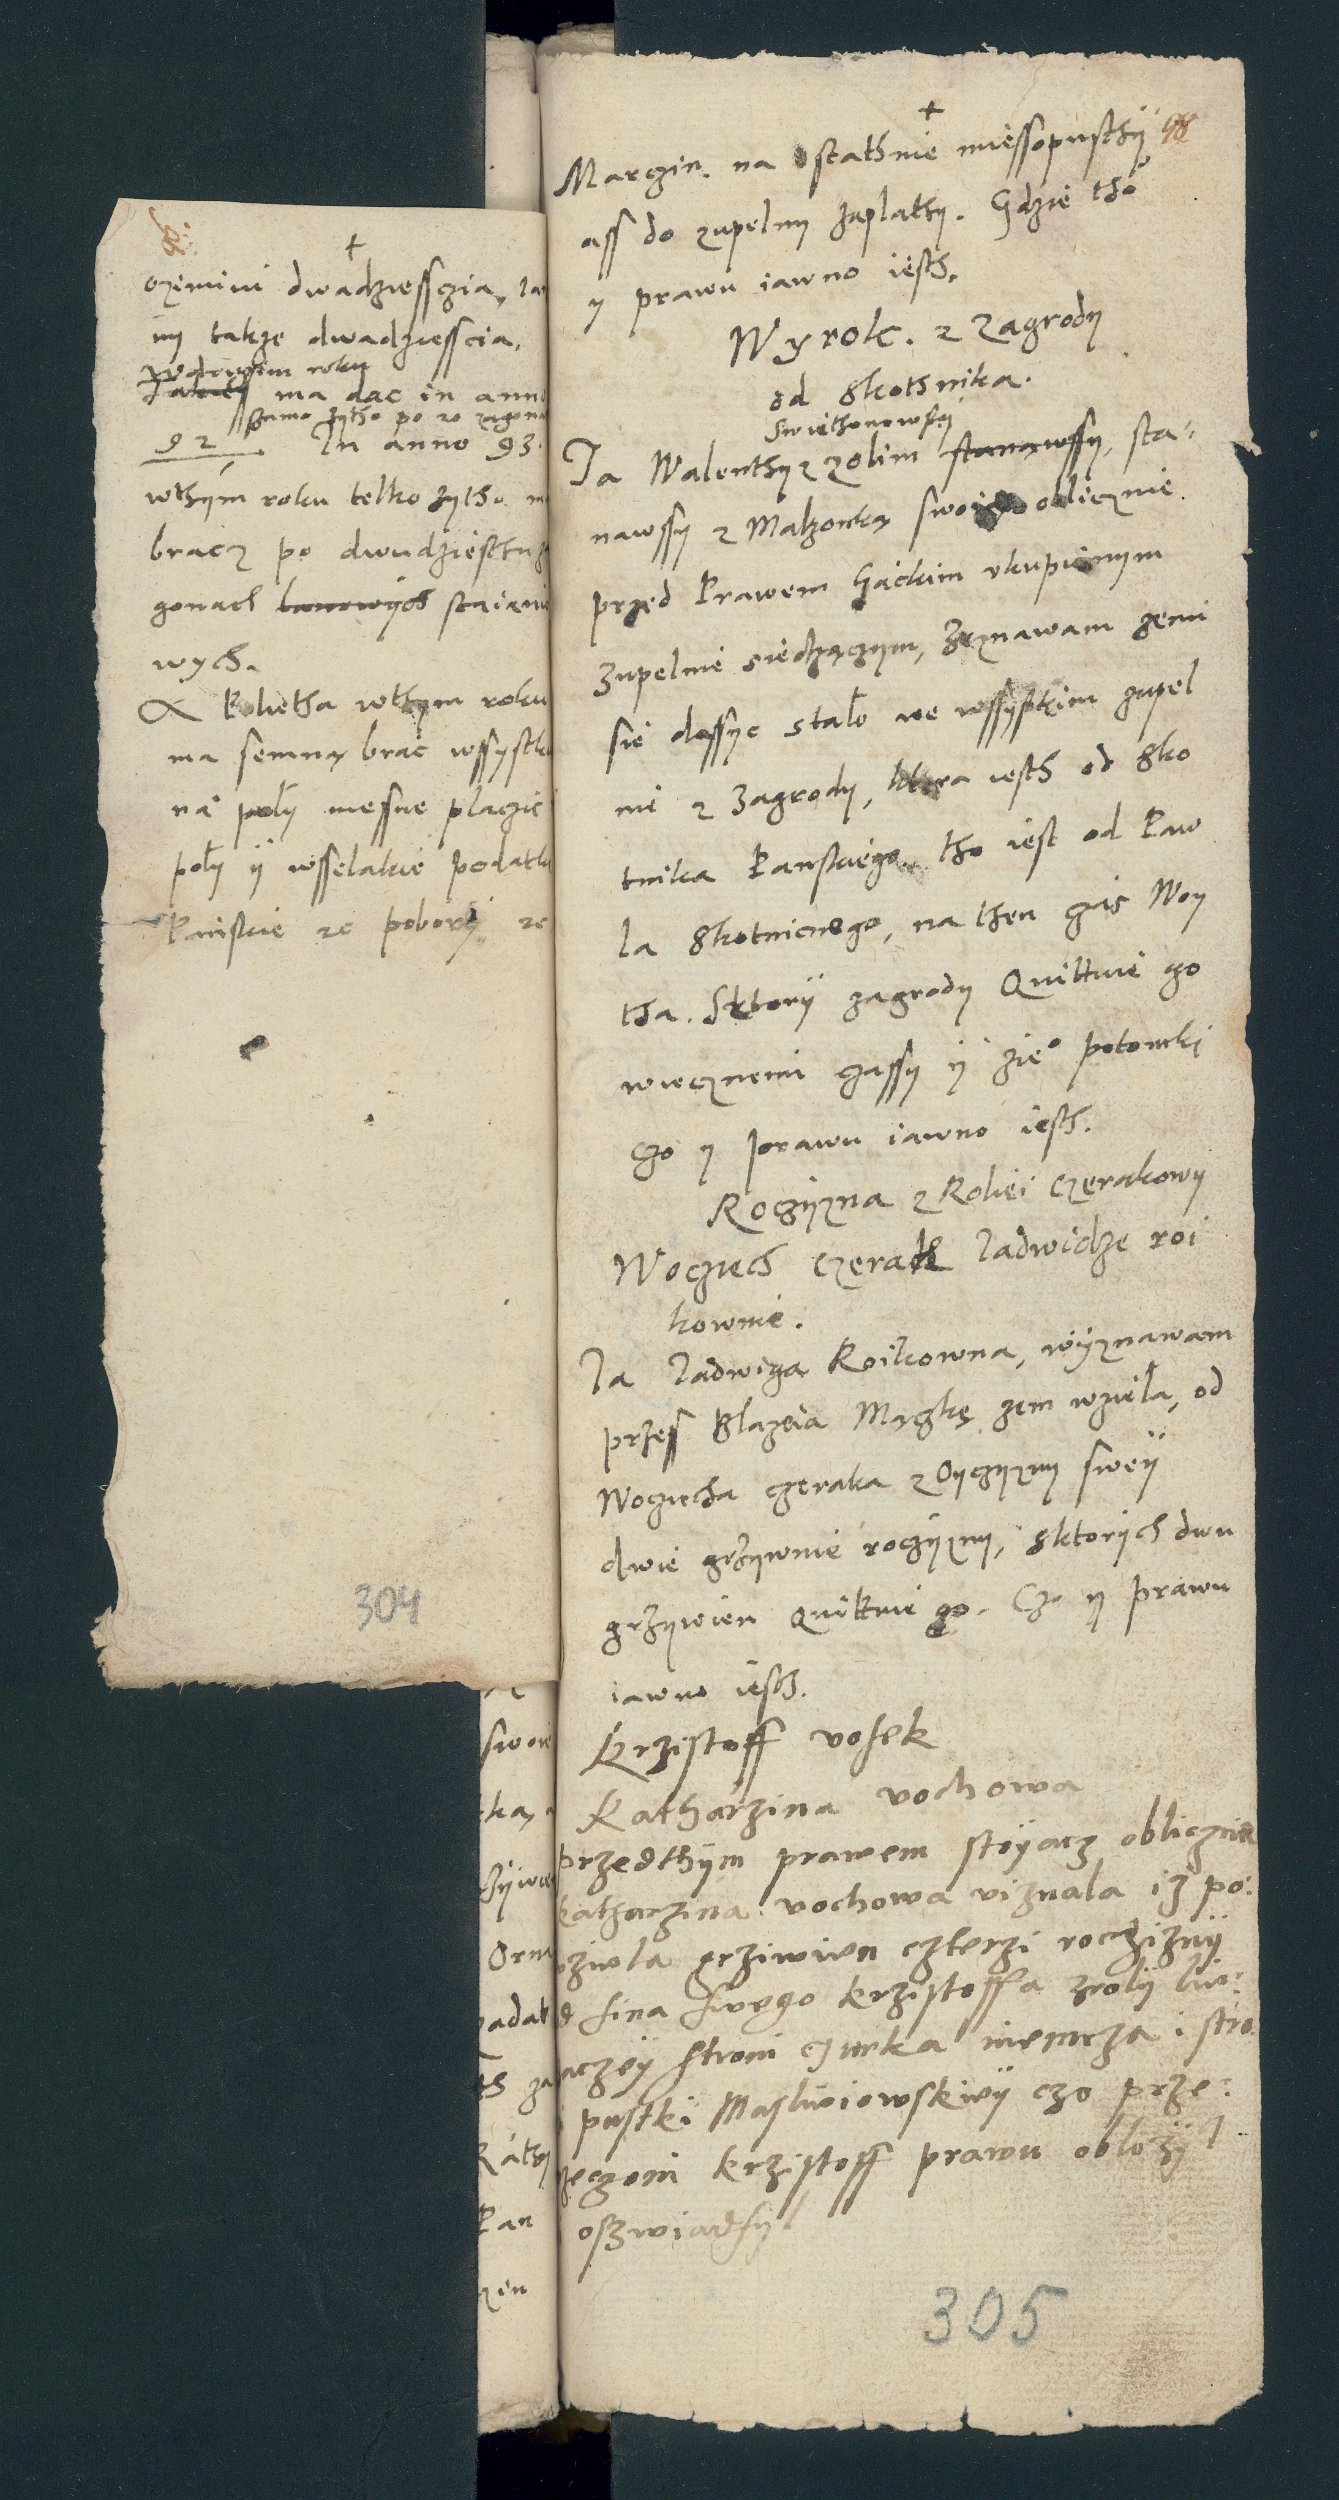 ozimini dwadziessczia, Ja
my takze dwadziesscia,
wdrugim roku
ma dac in anno
samo zytho po 20 zagona
92. In anno 93.
wthym roku telko zytho
bracz po dwudziestu
gonach lanowych staianie
wych.
A Kobietha wthym roku
ma semną brac wssystko
na poły messne placzic
poły ÿ wsselakie podatki
Panskie ze pobory ze
304
swoie
ka,
Orna
zadat
th za
Pan
+
98
Marczin. na Ostathnie miessopusthÿ
ass do zupelny zaplathy. Gdzie tho
y prawu iawno iesth.
Wyrok. z Zagrody
od Skothnika.
Swiethonowsky
Ja Walenthy z Zolim stanąwssy, sta-
nawssy z Malzonką swoią oblicznie
przed Prawem Gackim vkupionym
zupelnie siedzączym, Zeznawam zemi
sie dossyc stało we wssystkim zupel
nie z Zagrody, ktora iesth od Sko
tnika Panskiego, tho iest od Paw
la Skotniczego, na then czas Woy
tha. Sktorÿ zagrody Quittuie go
wiecznemi czassy ÿ gie° potomki
Czo y prawu iawno iesth.
Roczÿzna z Roliei Czerakowy
Wocziech Czerak Jadwidze roi
kownie.
Ja Jadwiga Roikowna, wÿznawam
przess Blazeia Mączkę zem wzieła, od
Wocziecha Czeraka z Oyczyzny sweÿ
dwie grzywnie roczÿzny, sktorÿch dwu
grzywien Quittuie go. Czo y prawu
iawno iesth.
Krzistoff vosek
Katharzina vochowa
przedthÿm prawem stoÿacz oblicznie
katharzina vochowa viznala iz po:
grziwien czterzi roczizny
sina swego krzistoffa zroly
stroni Jurka niemcza i stro
pustki Masluiowskiÿ czo prze:
krzistoff prawu oblozÿl
oswiadsyl
305